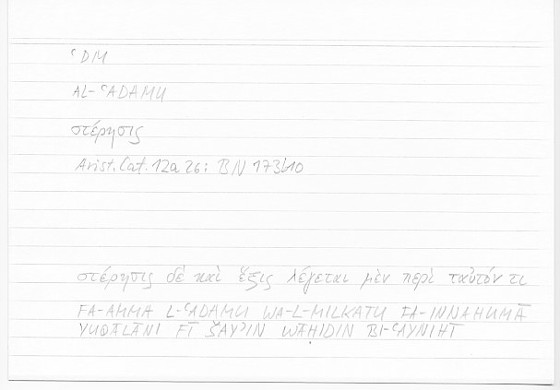 ʿDM
AL-ʿADAMU
στέρησις
Arist. Cat. 12a 26; BN 173b10
στέρησις δὲ καὶ ἕξις λέγεται μὲν περὶ ταὐτόν τι
FA-AMMA L-ʿADAMU WA-L-MILKATU FA-INNAHUMĀ
YUQĀLĀNI FĪ ŠAYʾIN WĀḤIDIN BI-ʿAYNIHĪ